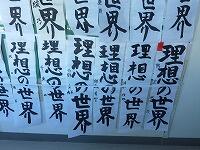 世界
世界
世界
世界
世界
世界
理想の世界
理想の世界
理想の世界
理想の世界
理想の世界
理想の世界